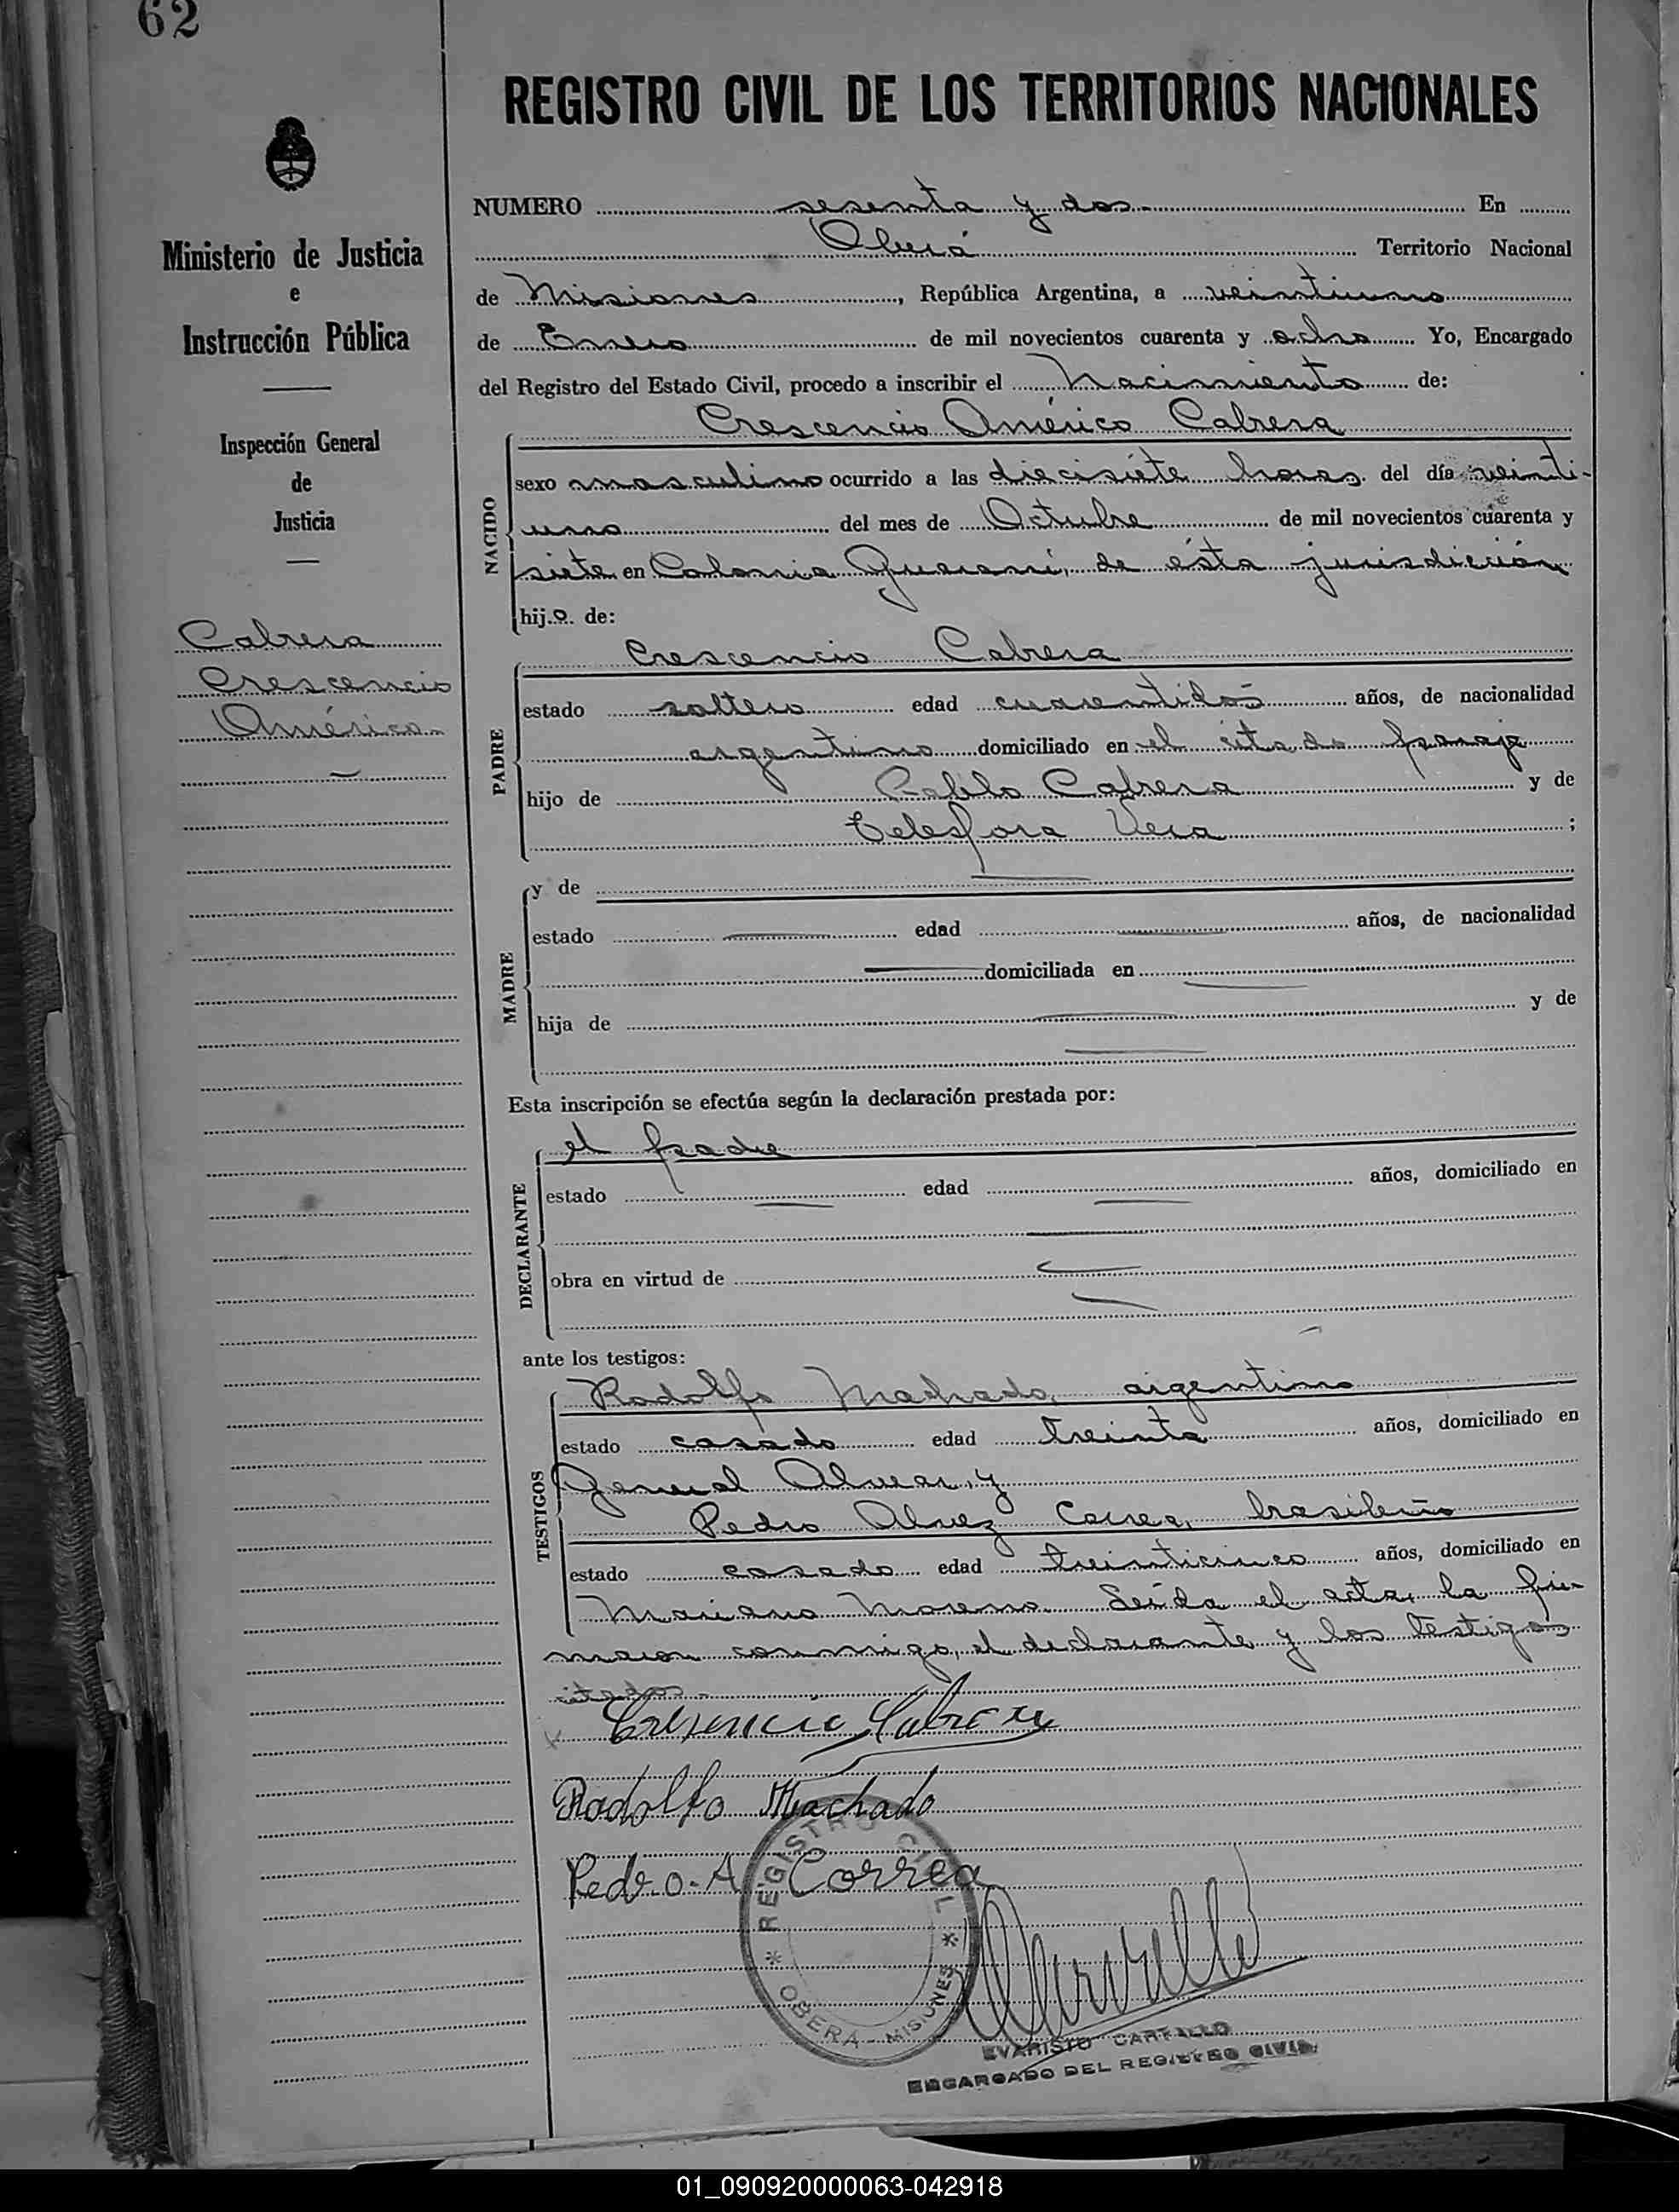 62
REGISTRO CIVIL DE LOS TERRITORIOS NACIONALES
Ministerio de Justicia
e
Instrucción Pública
Inspección General
de
Justicia
Cabrera
Crescencio
Américo
NUMERO sesenta y dos En
Oberá Territorio Nacional
de Misiones, República Argentina, a veintiuno
de Enero de mil novecientos cuarenta y ocho Yo, Encargado
del Registro del Estado Civil, procedo a inscribir el Nacimiento de:
Crescencio Américo Cabrera
NACIDO
sexo masculino ocurrido a las diecisiete horas. del día veinti-
uno del mes de Octubre de mil novecientos cuarenta y
siete en Colonia Guaraní, de ésta jurisdicción
hij.o. de:
PADRE
Crescencio Cabrera
estado soltero edad cuarentidos años, de nacionalidad
argentino domiciliado en el citado paraje
hijo de Pablo Cabrera y de
Telesfora Vera ;
MADRE
y de
estado edad años, de nacionalidad
domiciliada en
hija de y de
Esta inscripción se efectúa según la declaración prestada por:
DECLARANTE
el padre
estado edad años, domiciliado en
obra en virtud de
ante los testigos:
TESTIGOS
Rodolfo Machado, argentino
estado casado edad treinta años, domiciliado en
General Alvear, y
Pedro Alvez Correa, brasileño
estado casado edad treinticinco años, domiciliado en
Mariano Moreno. Leída el acta, la fir-
maron conmigo, el declarante y los testigos
citados.-
Cresencio Cabrera
Rodolfo Machado
Pedro A. Correa
REGISTRO CIVIL
* OBERA - MISIONES *
EVARISTO
ENCARGADO DEL REGISTRO CIVIL
01_090920000063-042918